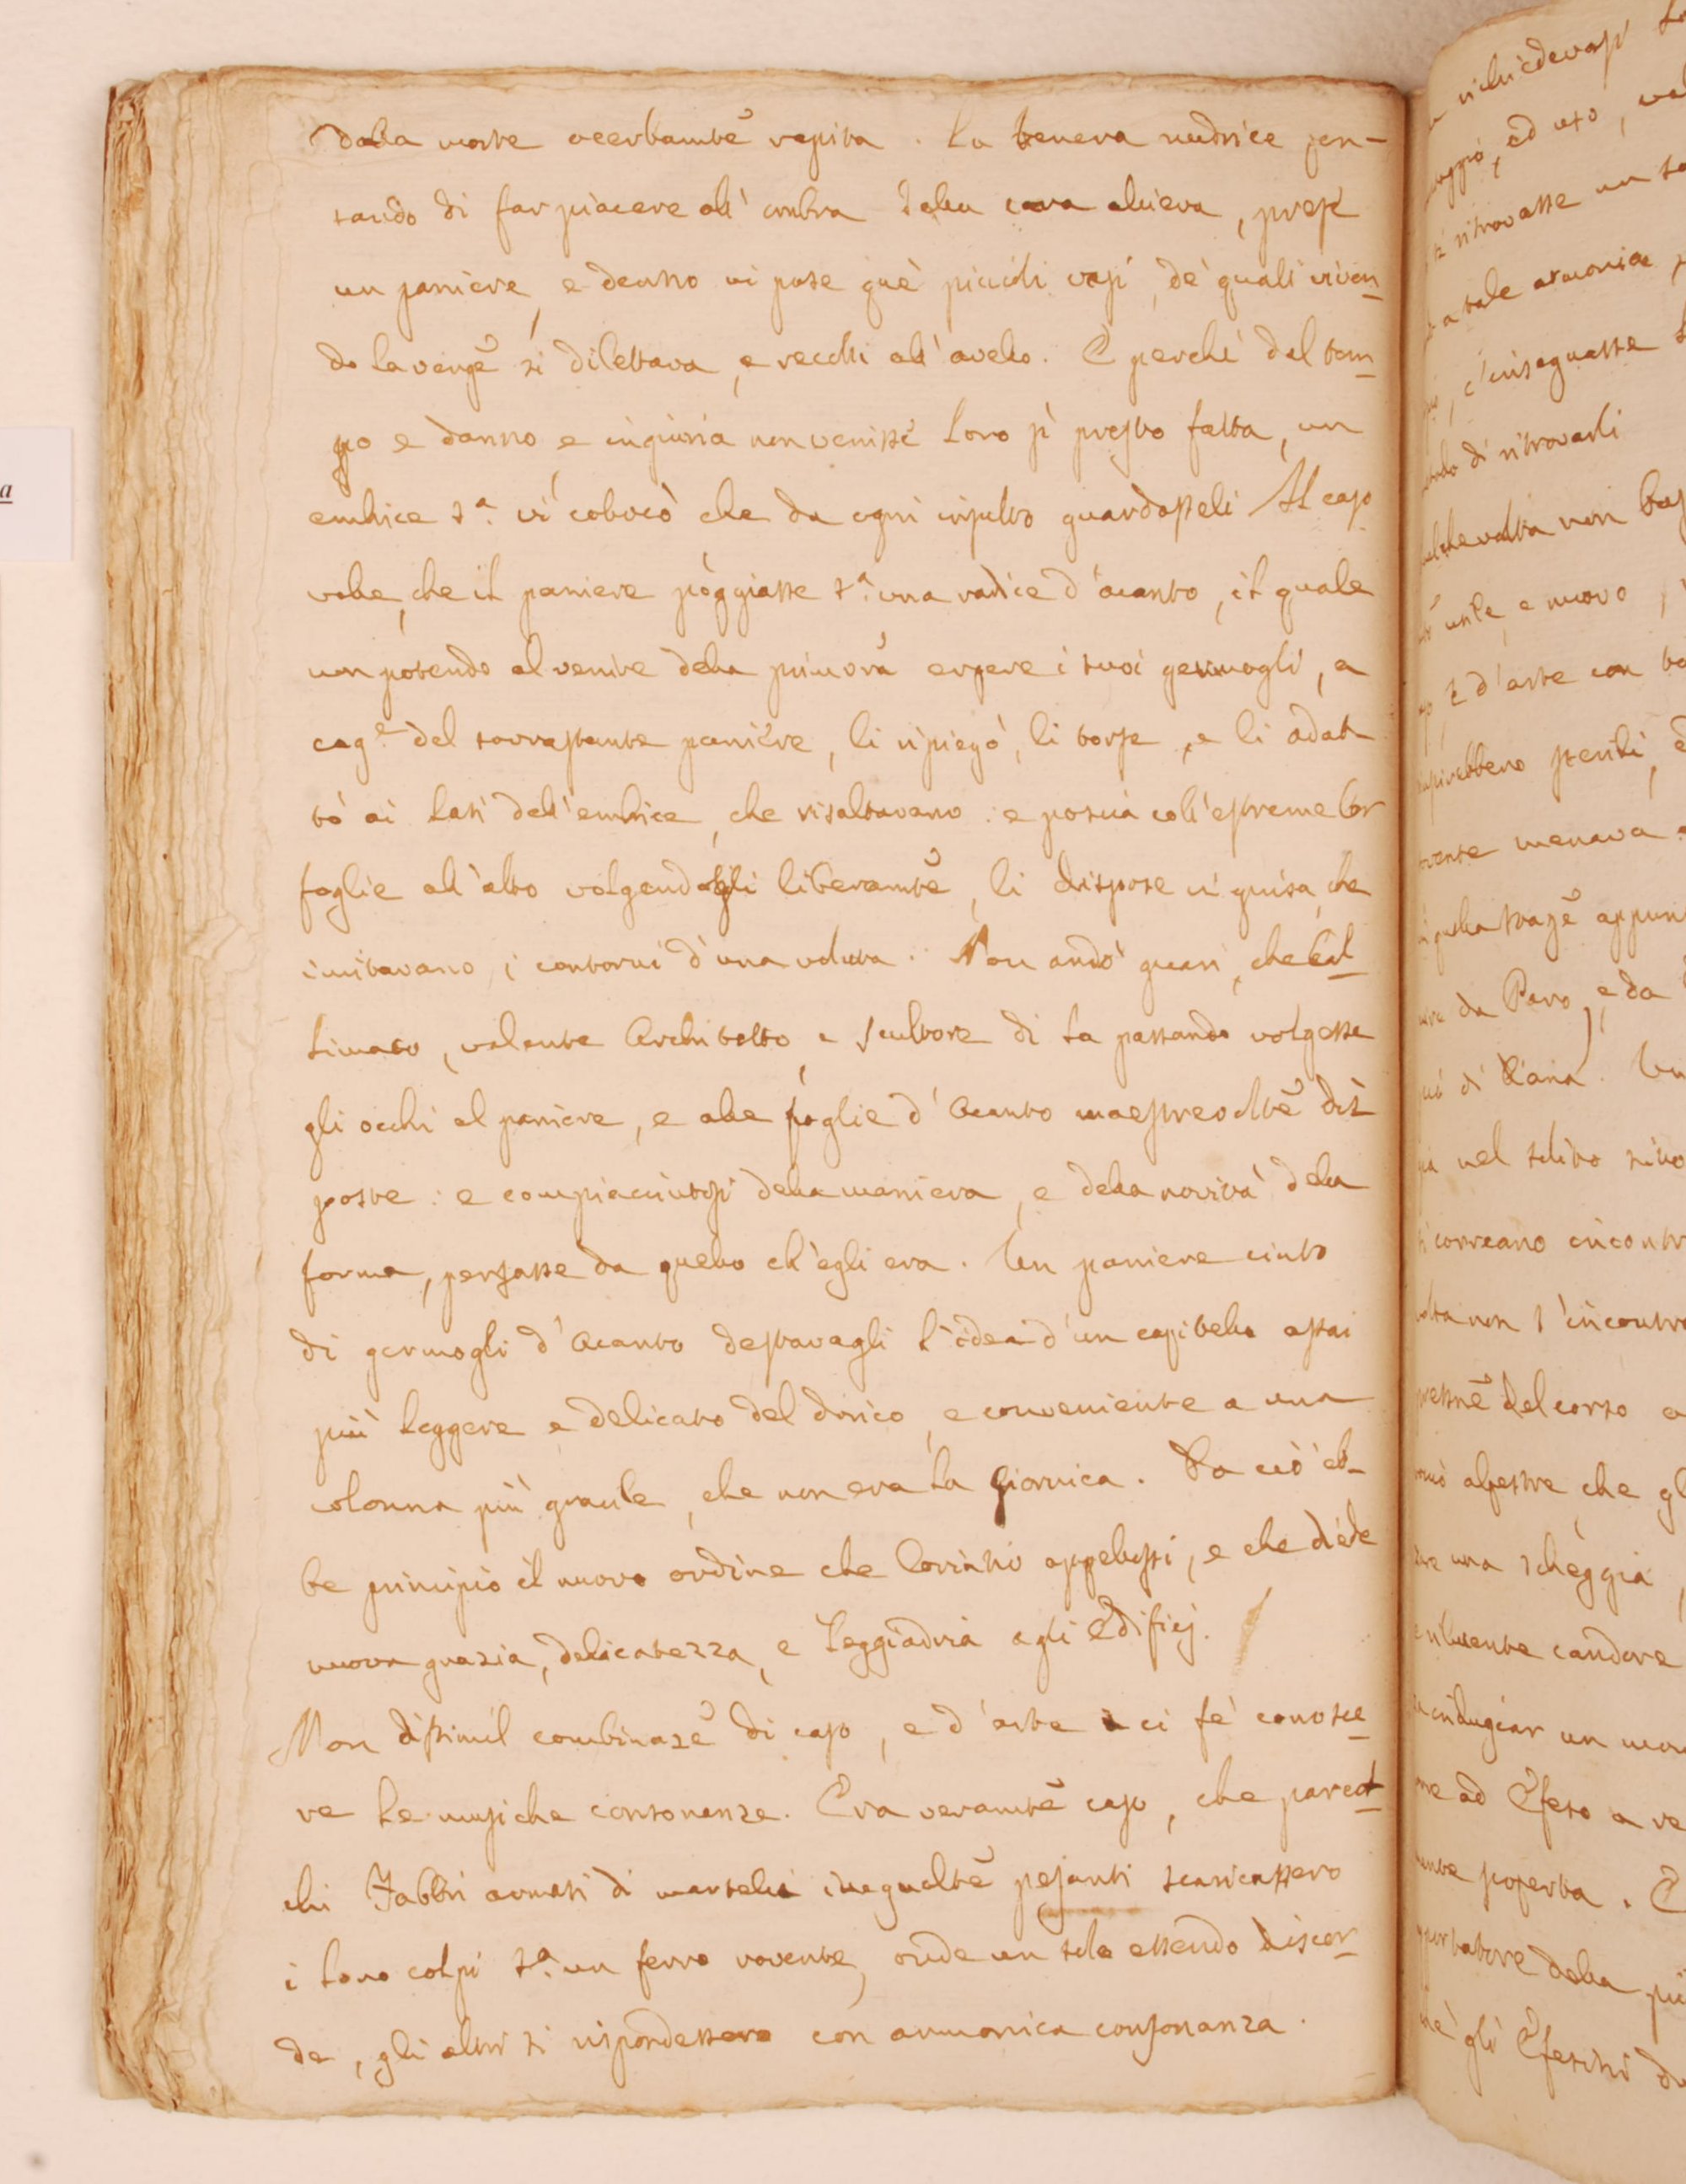 dalla morte acerbamte rapita. La tenera nudrice pen-
sando di far piacere all'ombra della cara alieva, prese
un paniere, e dentro vi pose que' piccioli vasi, de' quali viven-
do la verge si dilettava, e recolli all'avello. E perchè dal tem-
po e danno, e ingiuria non venisse loro sì presto fatta, un
embrice s.a vi collocò che da ogni insulto guardasseli Il caso
volle, che il paniere poggiasse s.a una radice d'acanto, il quale
non potendo al venire della primavra ergere i suoi germogli, a
cag.e del sovrastante paniere, li ripiegò, li torse, e li adat
tò ai lati dell'embrice, che risaltavano: e poscia coll'estreme lor
foglie all'alto volgendogli liberamte, li dispose in guisa, che
imitavano i contorni d'una voluta. Non andò guari, che Cal-
limaco, valente Architetto, e scultore di la passando volgesse
gli occhi al paniere, e alle foglie d'Acanto maestrevolte dis
poste: e compiaciutosi della maniera, e della novità della
forma, pensasse da quello ch'egli era. Un paniere cinto
di germogli d'Acanto destavagli l'idea d'un capitello assai
più leggere e delicato del dorico, e conveniente a una
colonna più gracile, che non era la gionica. Da ciò eb-
be principio il nuovo ordine che Corintio appellossi, e che diede
nuova grazia, delicatezza, e leggiadria agli edificj.
Non dissimil combinaze di caso, e d'arte ci fè conosce-
re le musiche consonanze. Era veramte caso, che parec-
chi Fabbri armati di martelli inegualte pesanti scaricassero
i loro colpi s.a un ferro rovente, onde un solo essendo discor-
de, gli altri si rispondessero con armonica consonanza.
richiedevasi
ed uso,
si ritrovasse un
a tale armonia
c'insegnasse
di ritrovarli
non
utile, e nuovo
d'arte con
sterili,
menava
appun
da Paro, e da
di
nel solito
correano incontr
non s'incontr
del corso
alpestre, che gl
una scheggia
candore
indugiar un mom
ad Efeso a re
scoperta. E
della
gli Efesini